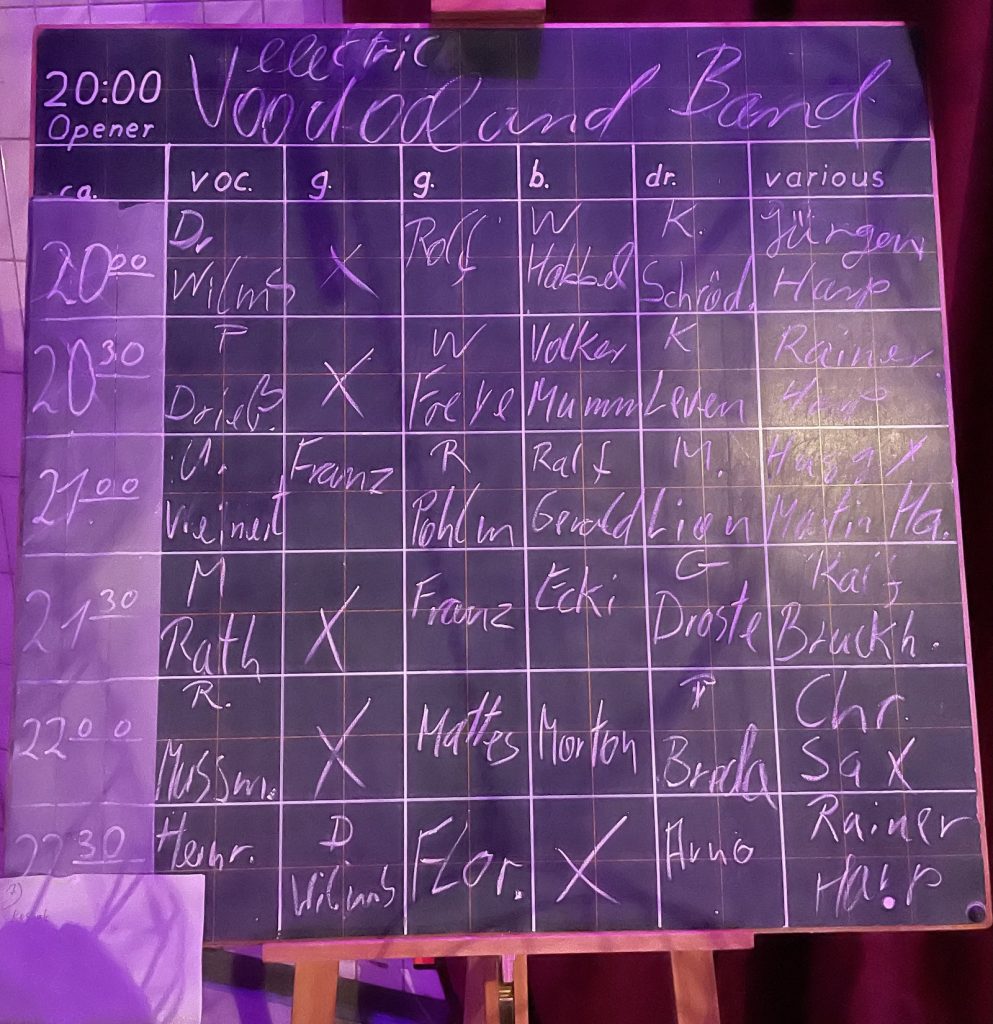 20:00
Opener
electric
Voodoo Land Band
ca. voc. g. g. b. dr. various
20 00
D. Wilms
X
Rolf
W
K. Schröd.
Jürgen Harp
20 30
T Drieß.
X
W
Volker Mumm
K Leven
Rainer Harp
21 00
U.
Franz
R Pöhlm
Ralf Gerold
M. Lien
Martin Ha.
21 30
M Rath
X
Franz
Ecki
G Droste
Kai Bruckh.
22 00
R. Mussm.
X
Mattes
Morton
T Breda
Chr. Sax
22 30
Heinr.
D Wilms
Flor.
X
Arno
Rainer Harp